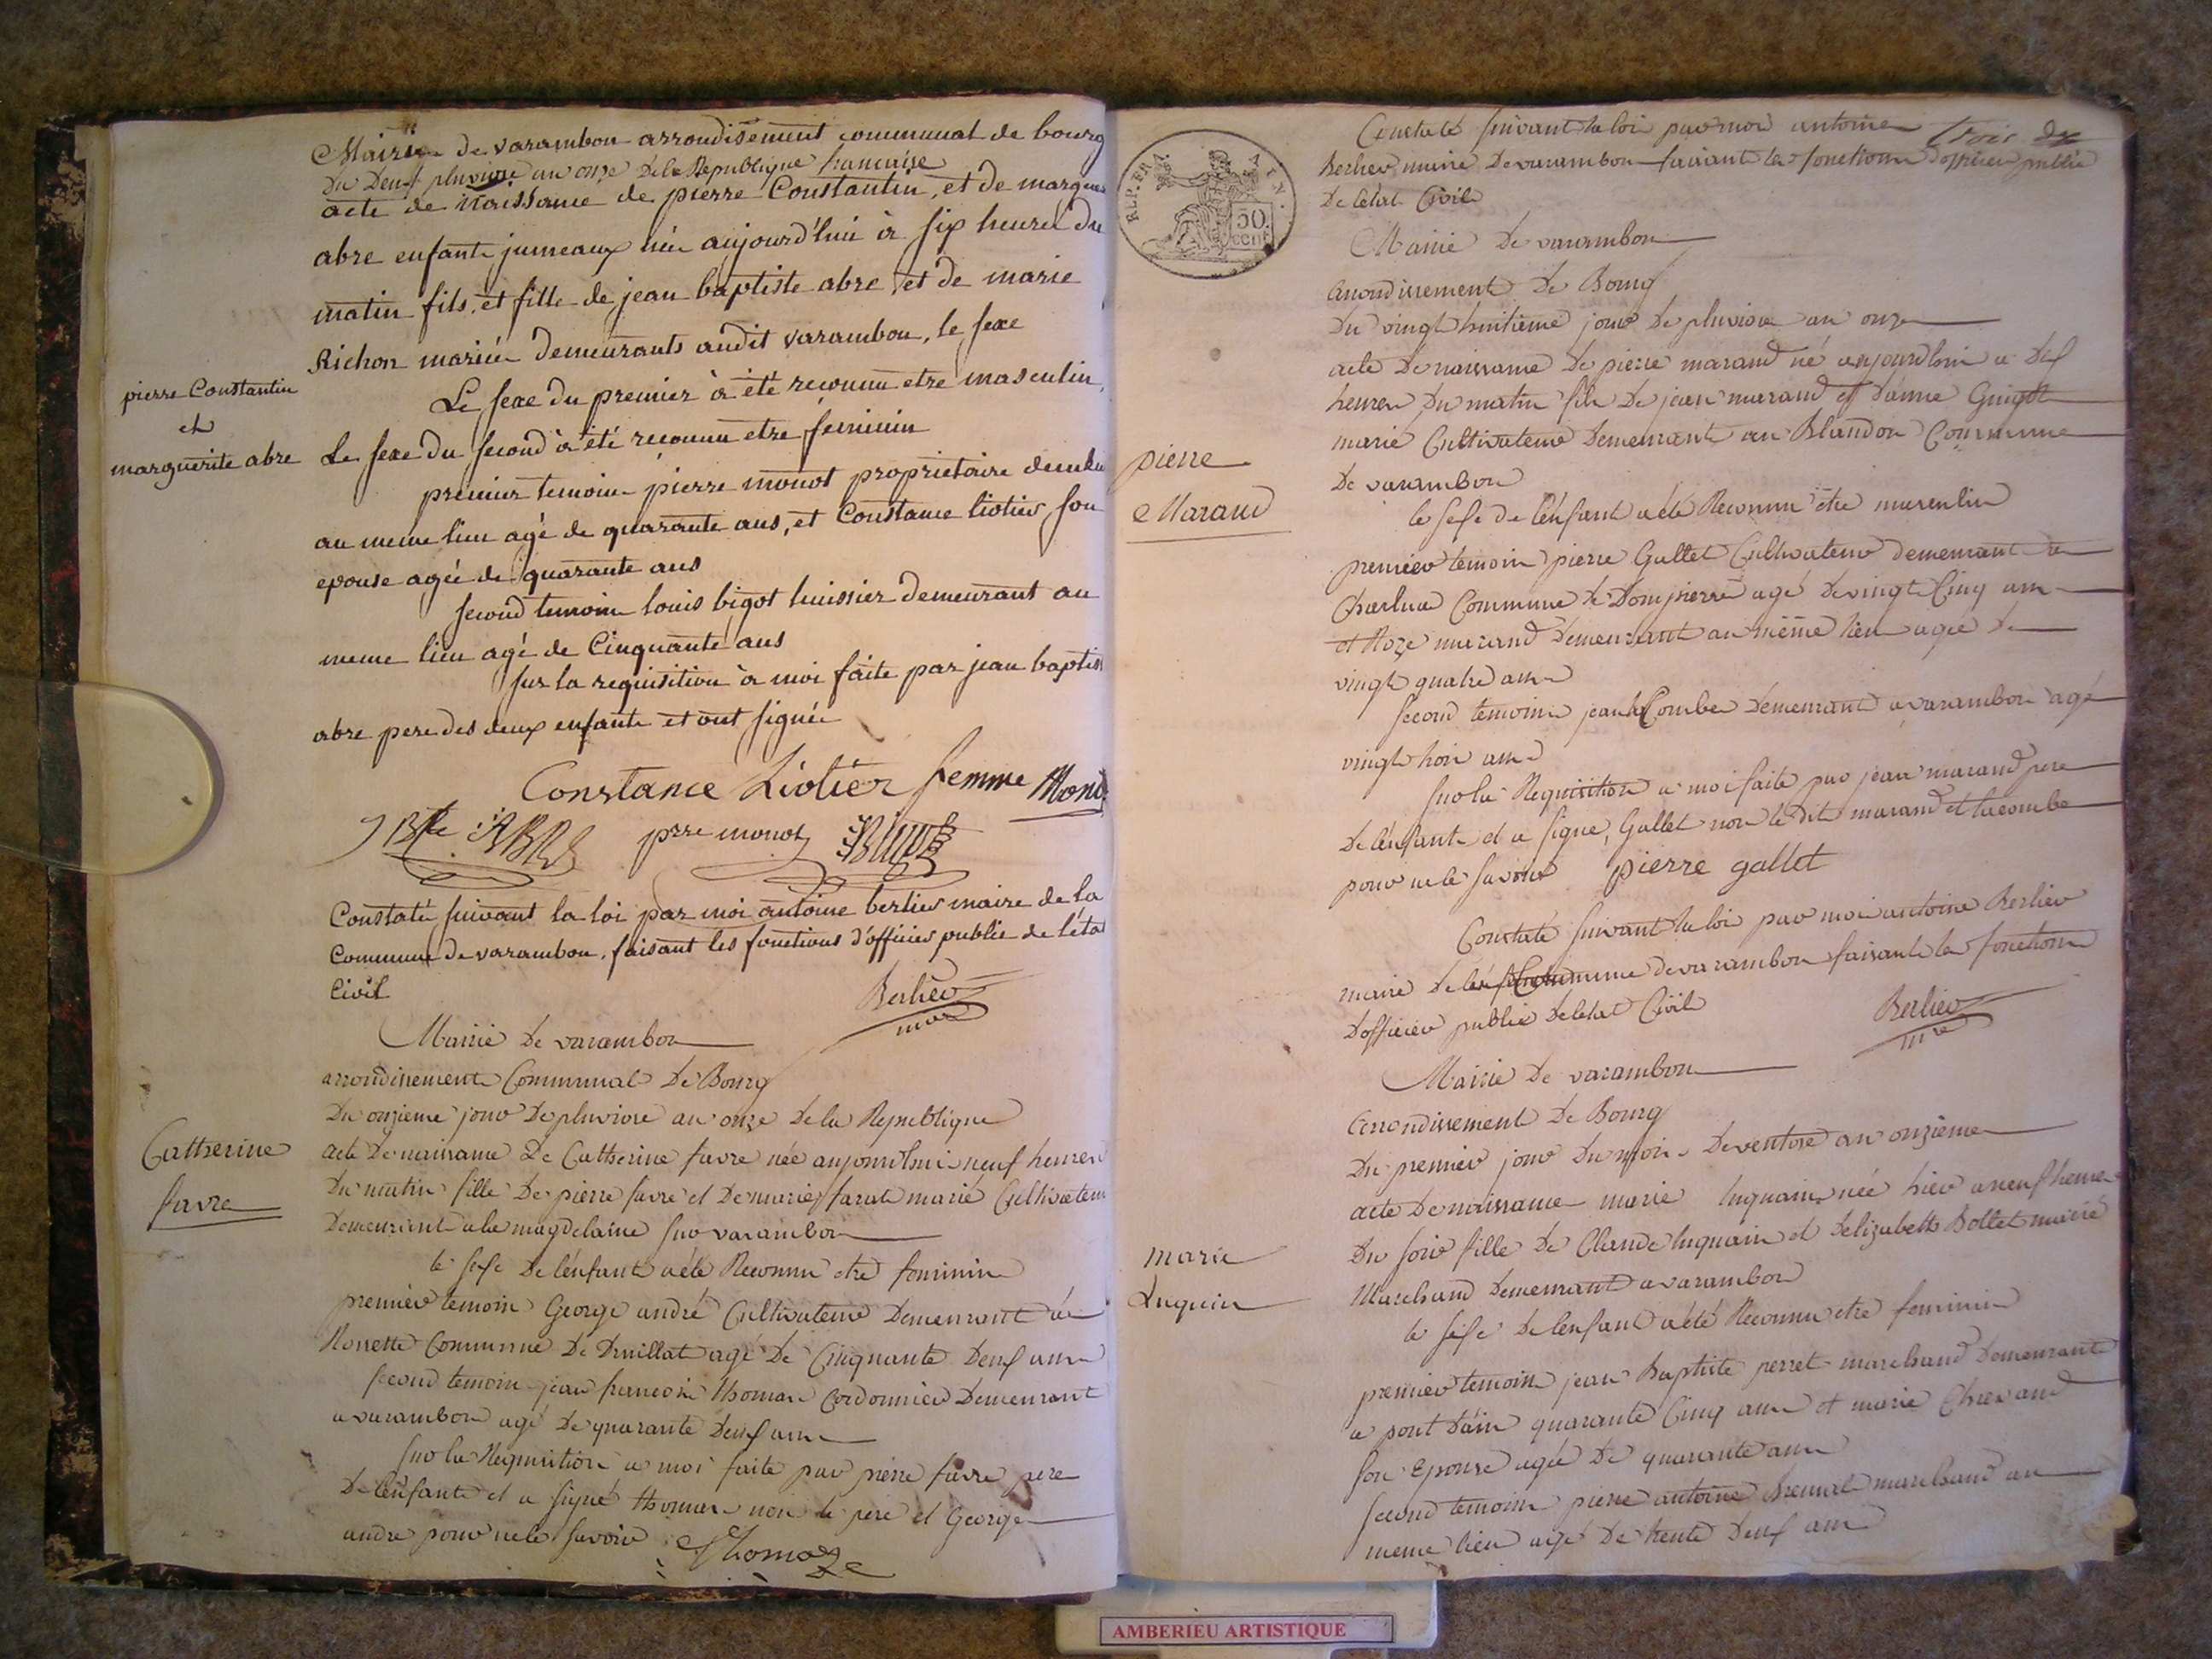 Mairie de varambon arrondisement communal de bourg
du Deux pluviose an onze de la Republique francaise
acte de Naissance de pierre Constantin, et de margue
abre enfants jumeaux née aujourd'hui à six heures du
matin fils, et fille de jean baptiste abre et de marie
Richon mariée demeurants audit varambon, le sexe
Le sexe du premier à été reconnu etre masculin,
pierre Constantin
et
marguerite abre
Le sexe du second à été reconnu etre feminin
premier temoin pierre monot proprietaire
au meme lieu agé de quarante ans, et Constance liotier son
epouse agée de quarante ans
second temoin louis bigot huissier demeurant au
meme lieu agé de Cinquante ans
sur la requisition à moi faite par jean baptis
abre pere des deux enfants et ont signée
Constance Liotier femme Mono
J Bte ABRE pre monot
Constaté suivant la loi par moi antoine berlier maire de la
Commune de varambon, faisant les fonctions d'officier public de l'état
Civil
Berlier
mre
Mairie de varambon
arrondissement Communal De Bourg
Du onzieme jour De pluviose an onze de la Republique
Catherine
favre
acte De naissance De Catherine favre née aujourdhui neuf heures
Du matin fille De pierre favre et De marie farat marié Cultivateur
Demeurant a la magdelaine sur varambon
le sexe De l'enfant a été Reconnu etre feminin
premier temoin George andré Cultivateur Demeurant a
Rossette Commune De Druillat agé De Cinquante Deux ans
second temoin jean francois thomas Cordonnier Demeurant
a varambon agé De quarante Deux ans
sur la Requisition a moi faite par pierre favre pere
De l'enfant et a signé thomas non le pere et George
andre pour ne le savoir Thomaze
trois
REP. FRA.
50
cent
Constaté suivant la loi par moi antoine
Berlier maire De varambon faisant les fonctions D'officier public
De l'état Civil
Mairie De varambon
arrondissement De Bourg
Du vingt huitieme jour De pluviose an onze
acte De naissance De pierre marand né aujourdhui a dix
heures Du matin fils De jean marand et D'anne Guigot
marié Cultivateur Demeurant au Blandon Commune
De varambon
pierre
Marand
le sexe de l'enfant a été Reconnu etre masculin
premier temoin pierre Gallet Cultivateur demeurant a
Commune de Dompierre agé De vingt Cinq ans
et Roze marand Demeurant au même lieu agée de
vingt quatre ans
second temoin jean la Combe Demeurant a varambon agé
vingt trois ans
sur la Requisition a moi faite par jean marand pere
De l'enfant et a signé, Gallet non le Dit marand et lacombe
pour ne le savoir pierre gallet
Constaté suivant la loi par moi antoine Berlier
maire De Commune de varambon faisant les fonctions
D'officier public De letat Civil
Berlier
mre
Mairie De varambon
arrondissement De Bourg
Du premier jour Du mois De ventose an onzieme
acte De naissance marie luquain née hier a neuf heures
marie
Luquin
Du soir fille De Claude luquain et Delizabeth Bollet marié
Marchand Demeurant a varambon
le sexe De lenfant a été Reconnu etre feminin
premier temoin jean Baptiste perret marchand Demeurant
a pont Dain quarante Cinq ans et marie
son Epouse agée De quarante ans
second temoin pierre antoine marchand au
meme lieu agé De trente Deux ans
AMBERIEU ARTISTIQUE